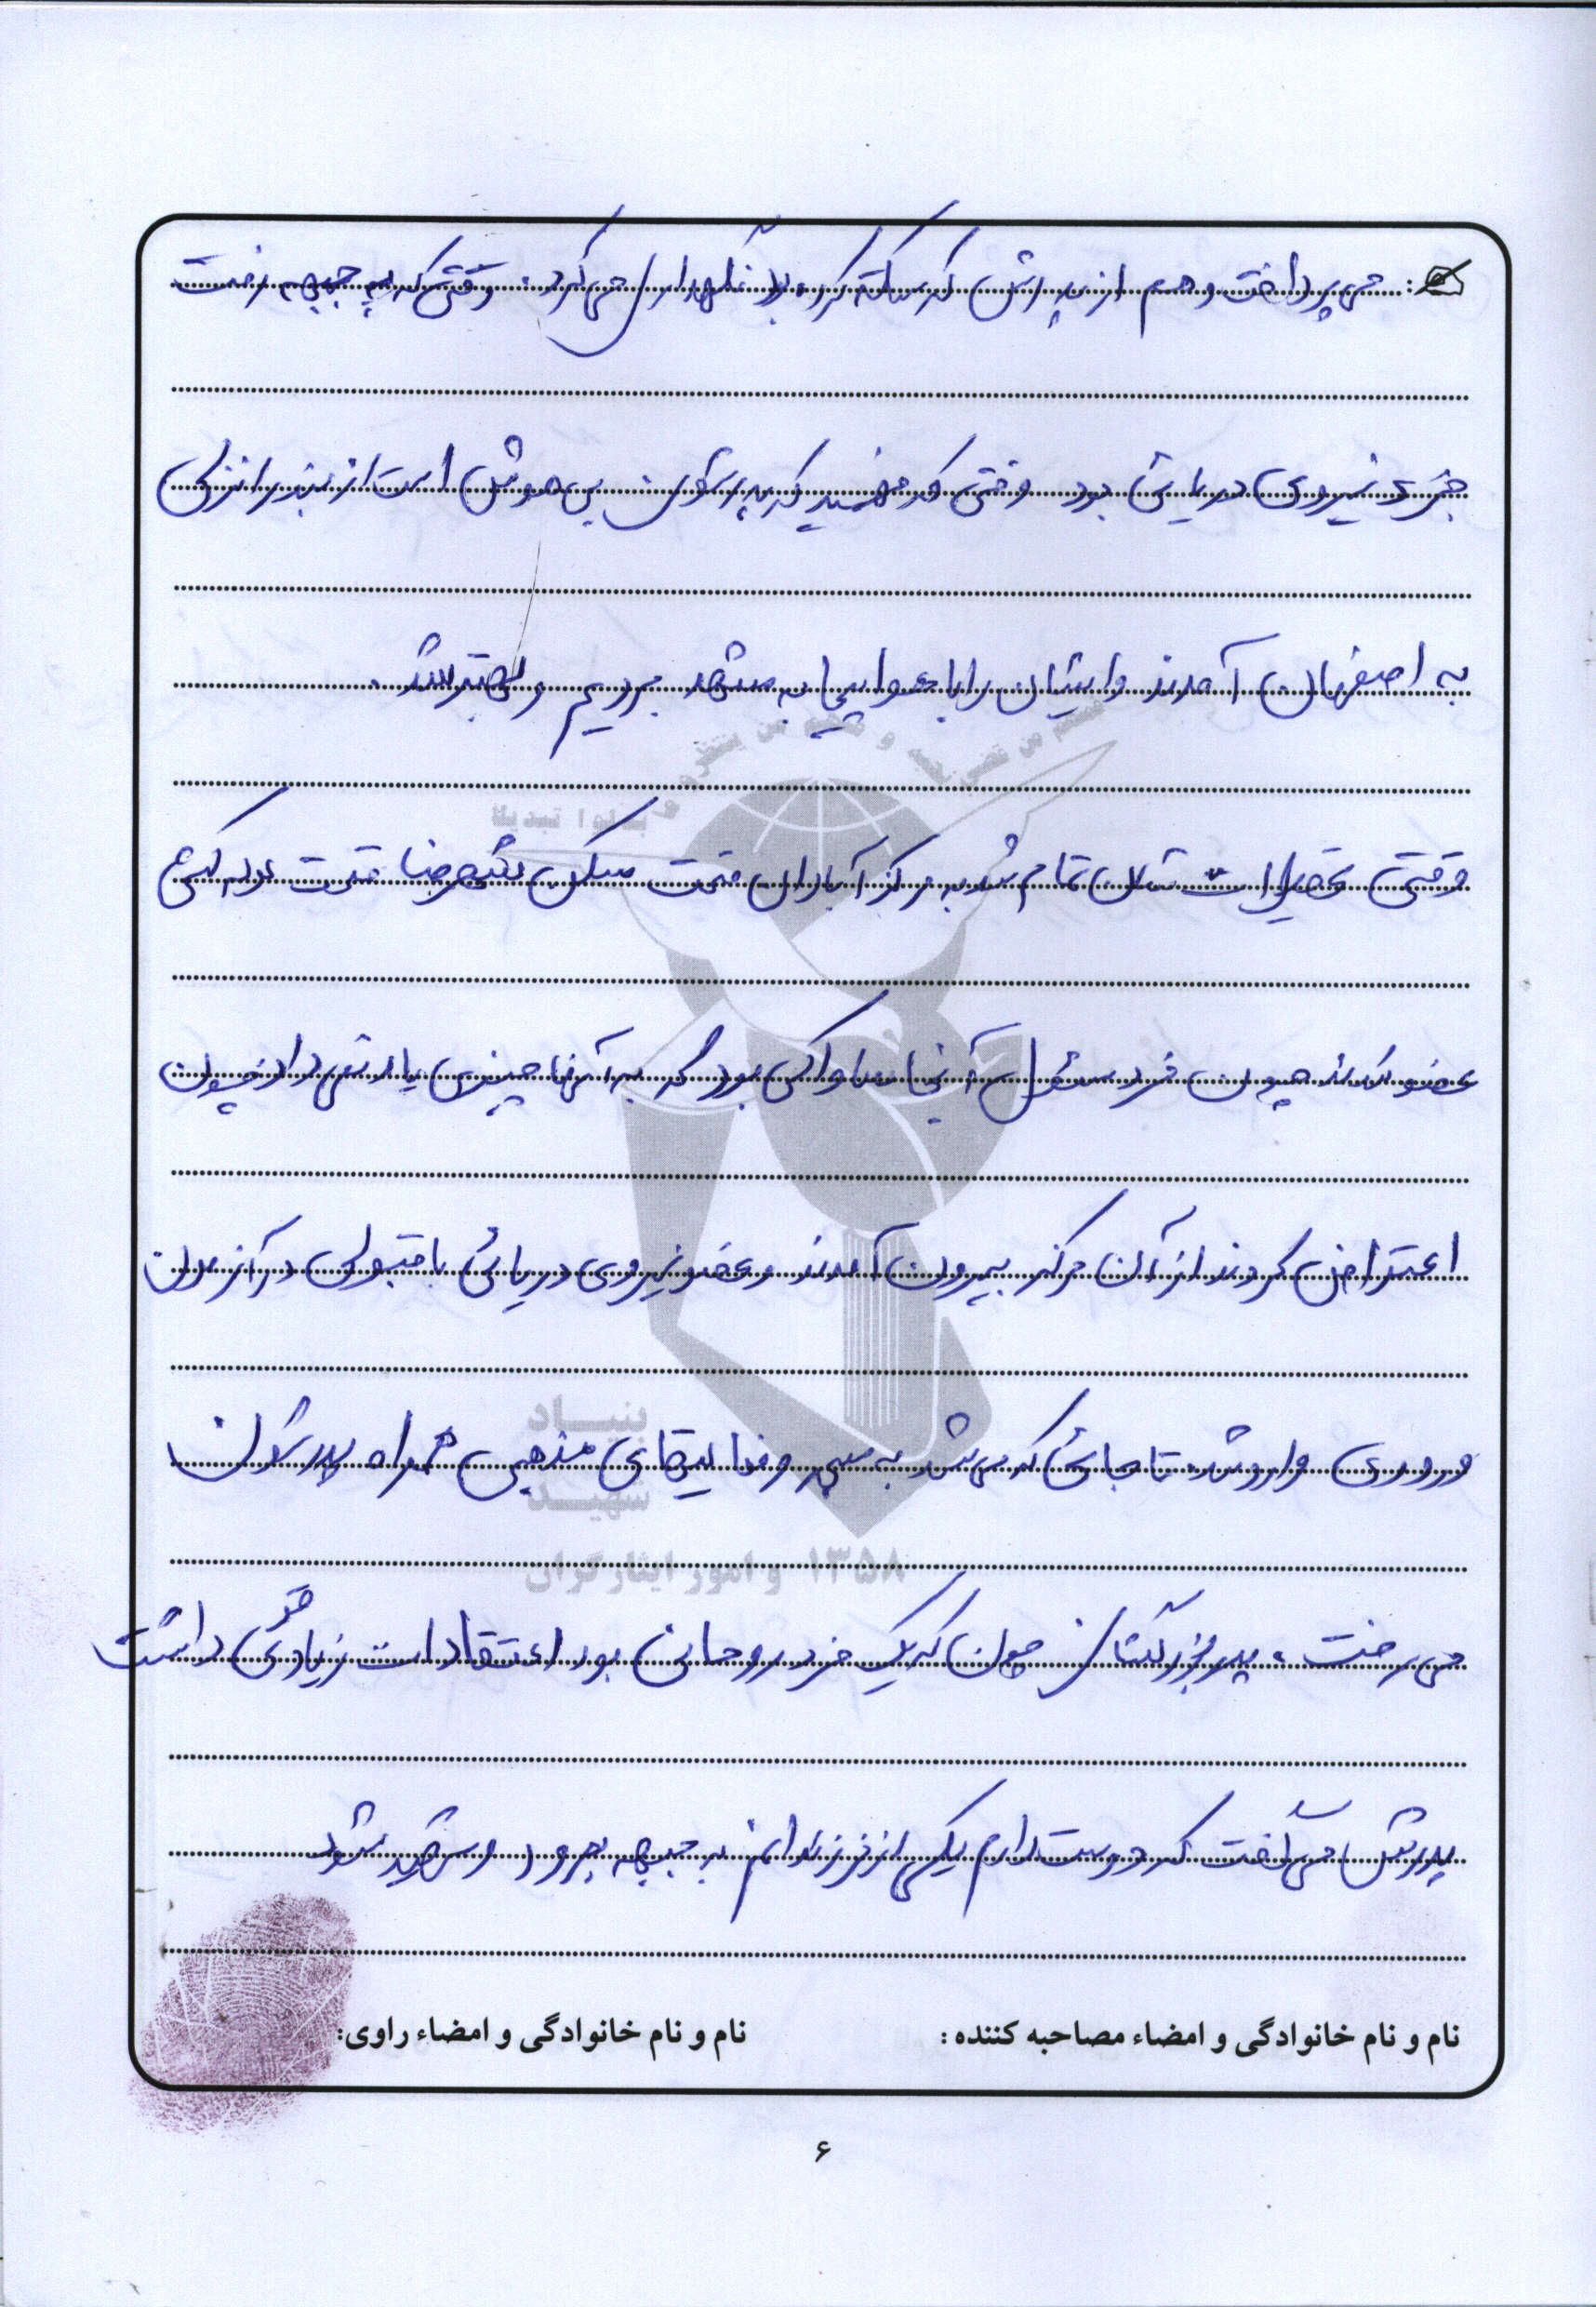 می پرداخت و هم از پدرش که سکته کرده بود نگهداری می کرد. وقتی که به جبهه رفت
جزء نیروی دریایی بود وقتی که فهمید که پدرشان بی هوش است از بندر انزلی
به اصفهان آمدند و ایشان را با هواپیما به مشهد بردیم و بهتر شد.
وقتی تحصیلات شان تمام شد به مرکز آبادان تحت
عضو شدند چون فرد مسئول آنجا ساواکی بود که به آنها چیزی یاد نمی داد چون
اعتراض کردند از آن مرکز بیرون آمدند و عضو نیروی دریائی با قبولی در آزمون
ورودی وارد شد. تا جائی که می شد به مسجد و فعالیتهای مذهبی همراه پدرشان
می رفت. پدربزرگشان چون که یک فرد روحانی بود اعتقادات زیادی داشت
پدرش می گفت که دوست دارم یکی از فرزندانم به جبهه برود و شهید شود
نام و نام خانوادگی و امضاء مصاحبه کننده: نام و نام خانوادگی و امضاء راوی:
۶
بنیاد
شهید
و امور ایثارگران ۱۳۵۸